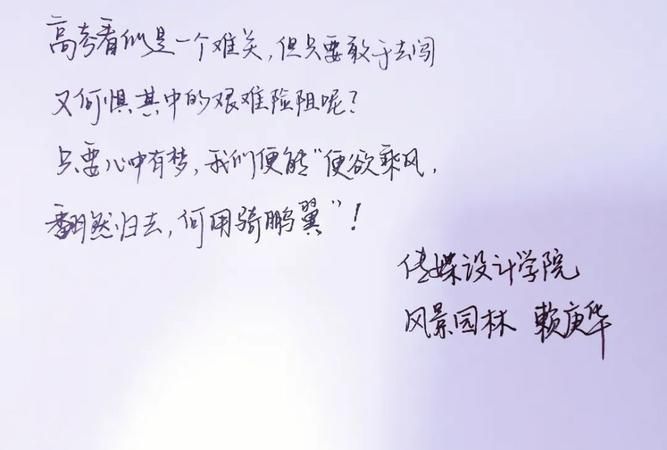 高考看似是一个难关,但只要敢于去闯
又何惧其中的艰难险阻呢?
只要心中有梦,我们便能“便欲乘风,
翻然归去,何用骑鹏翼”!
传媒设计学院
风景园林 赖庚华